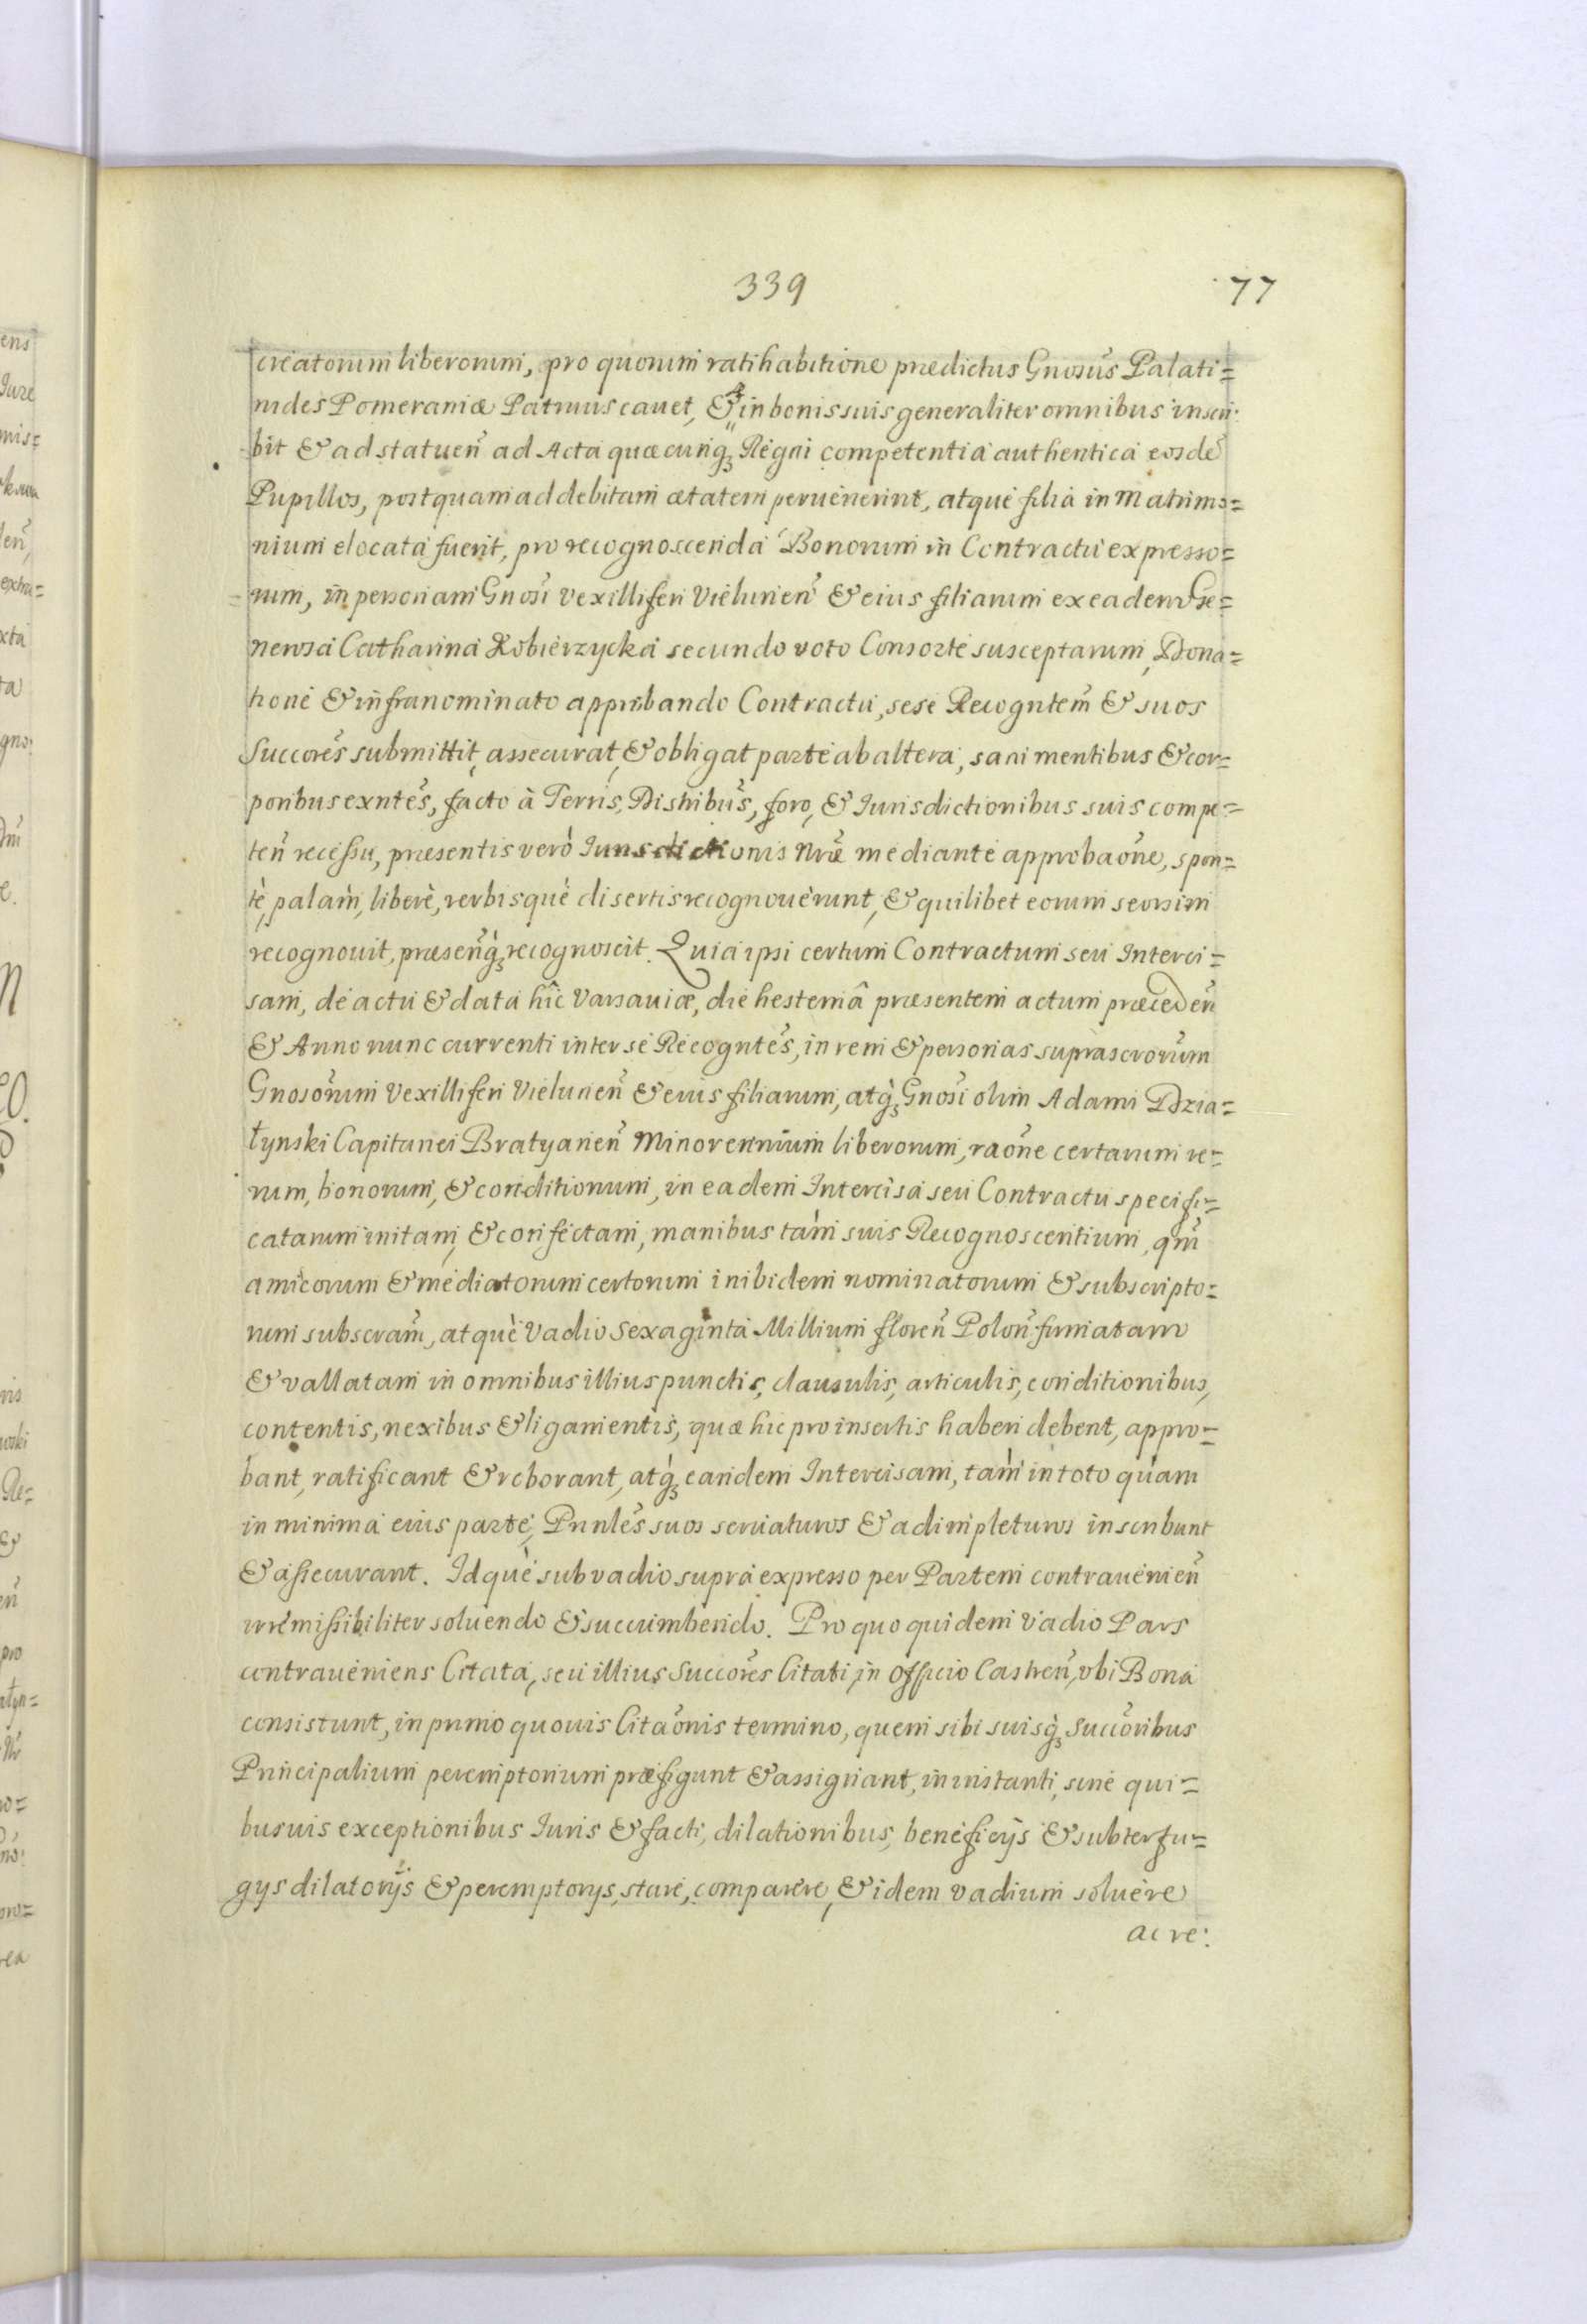 339
77
creatorum liberorum, pro quorum ratihabitione prædictus Gnosus Palati=
nides Pomeraniæ Patruus cauet, & in bonis suis generaliter omnibus inscri:
bit & ad statuen̄ ad Acta quæcunq₃ Regni competentia authentica eosdē
Pupillos, postquam ad debitam ætatem peruenerint, atque filia in Matrimo=
nium elocata fuerit, pro recognoscenda Bonorum in Contractu expresso=
rum, in personam Gnosi Vexilliferi Vielunen̄ & eius filiarum ex eadem Ge=
nerosa Catharina Kobierzycka secundo voto Consorte susceptarum, Dona=
tione & infranominato approbando Contractu, sese Recogntem̄ & suos
Succores submittit, assecurat, & obligat parte ab altera, sani mentibus & cor=
poribus exntes, facto à Terris, Distribus, foro, & Iurisdictionibus suis compe=
ten̄ recessu, præsentis verò Iurisdictionis Nræ mediante approbaōne, spon=
tè, palàm, liberè, verbisquè disertis recognouerunt, & quilibet eorum seorsim
recognouit, præsen̄q₃ recognoscit. Quia ipsi certum Contractum seu Interci=
sam, de actu & data hîc Varsauiæ, die hesternâ præsentem actum præceden̄
& Anno nunc currenti inter se Recogntes, in rem & personas suprascrorum
Gnosorum Vexilliferi Vielunen̄ & eius filiarum, atq₃ Gnosi olim Adami Dzia=
łynski Capitanei Bratyanen̄ Minorennium liberorum, raōne certarum re=
rum, bonorum, & conditionum, in eadem Intercisa seu Contractu specifi=
catarum initam, & confectam, manibus tàm suis Recognoscentium, qm̄
amicorum & mediatorum certorum inibidem nominatorum & subscripto=
rum subscram̄, atquè Vadio Sexaginta Millium floren̄ Polon̄ firmatam
& vallatam in omnibus illius punctis, clausulis, articulis, conditionibus,
contentis, nexibus & ligamentis, quæ hic pro insertis haberi debent, appro=
bant, ratificant & roborant, atq₃ eandem Intercisam, tàm in toto quàm
in minima eius parte, Prinles suos seruaturos & adimpleturos inscribunt
& assecurant. Idquè sub vadio supra expresso per Partem contrauenien̄
irremissibiliter soluendo & succumbendo. Pro quo quidem Vadio Pars
contraueniens Citata, seu illius Succores Citati, in Officio Castren̄, vbi Bona
consistunt, in primo quouis Citaōnis termino, quem sibi suisq₃ Succoribus
Principalium peremptorium præfigunt & assignant, in instanti, sine qui=
busuis exceptionibus Iuris & facti, dilationibus, beneficijs & subterfu=
gijs dilatorijs & peremptorijs, stare, comparere, & idem vadium soluere
ac re: